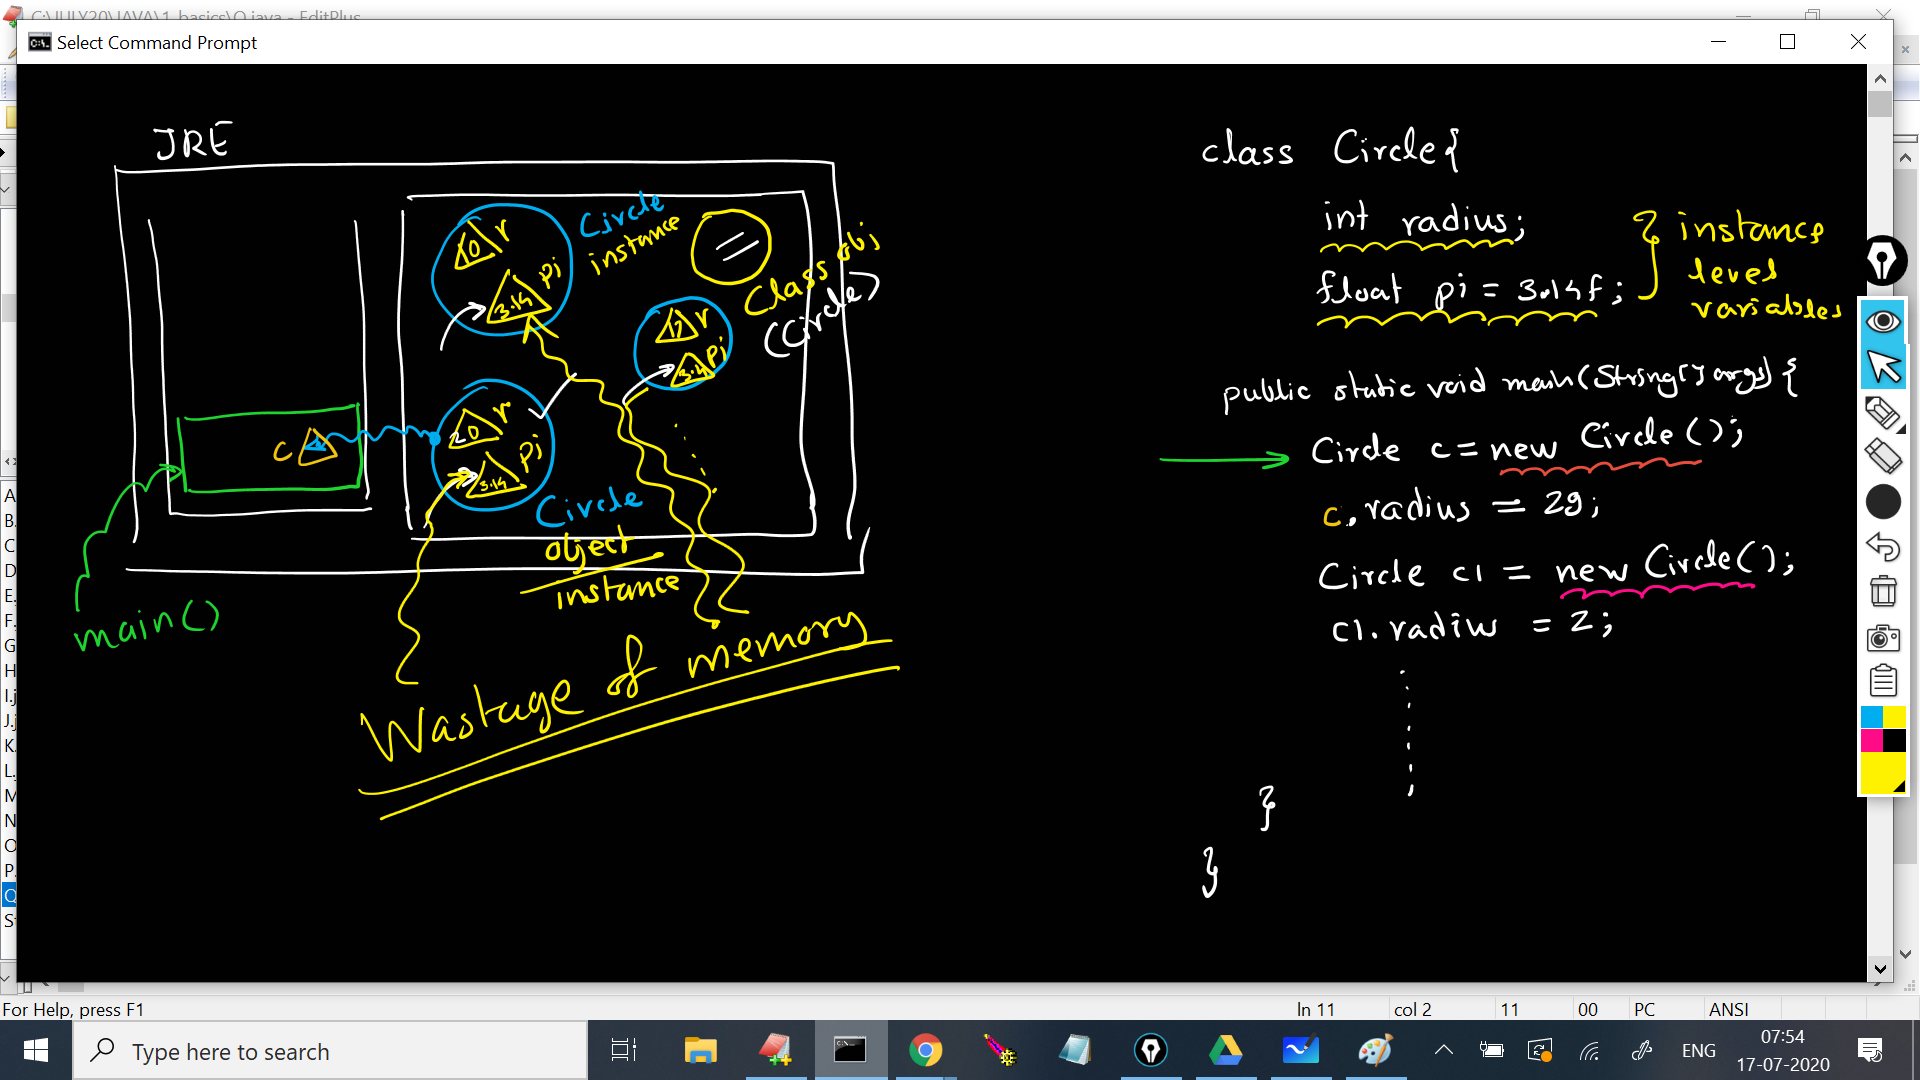 C:\JULY20\JAVA\1_basics\Q.java - EditPlus
Select Command Prompt
JRE
Circle
instance
10 r
pi
3.14
Class obj
(Circle)
12 r
pi
3.14
20 r
pi
3.14
c
Circle
object
instance
main()
Wastage of memory
class Circle{
int radius;
float pi = 3.14f;
} instance
level
variables
public static void main(String[] args) {
Circle c = new Circle();
c.radius = 29;
Circle c1 = new Circle();
c1.radius = 2;
}
}
A
B.
C
D
E.
F.
G
H
I.j
J.j
K.
L.
M
N
O
P.
Q
St
For Help, press F1
ln 11
col 2
11
00
PC
ANSI
Type here to search
ENG
07:54
17-07-2020